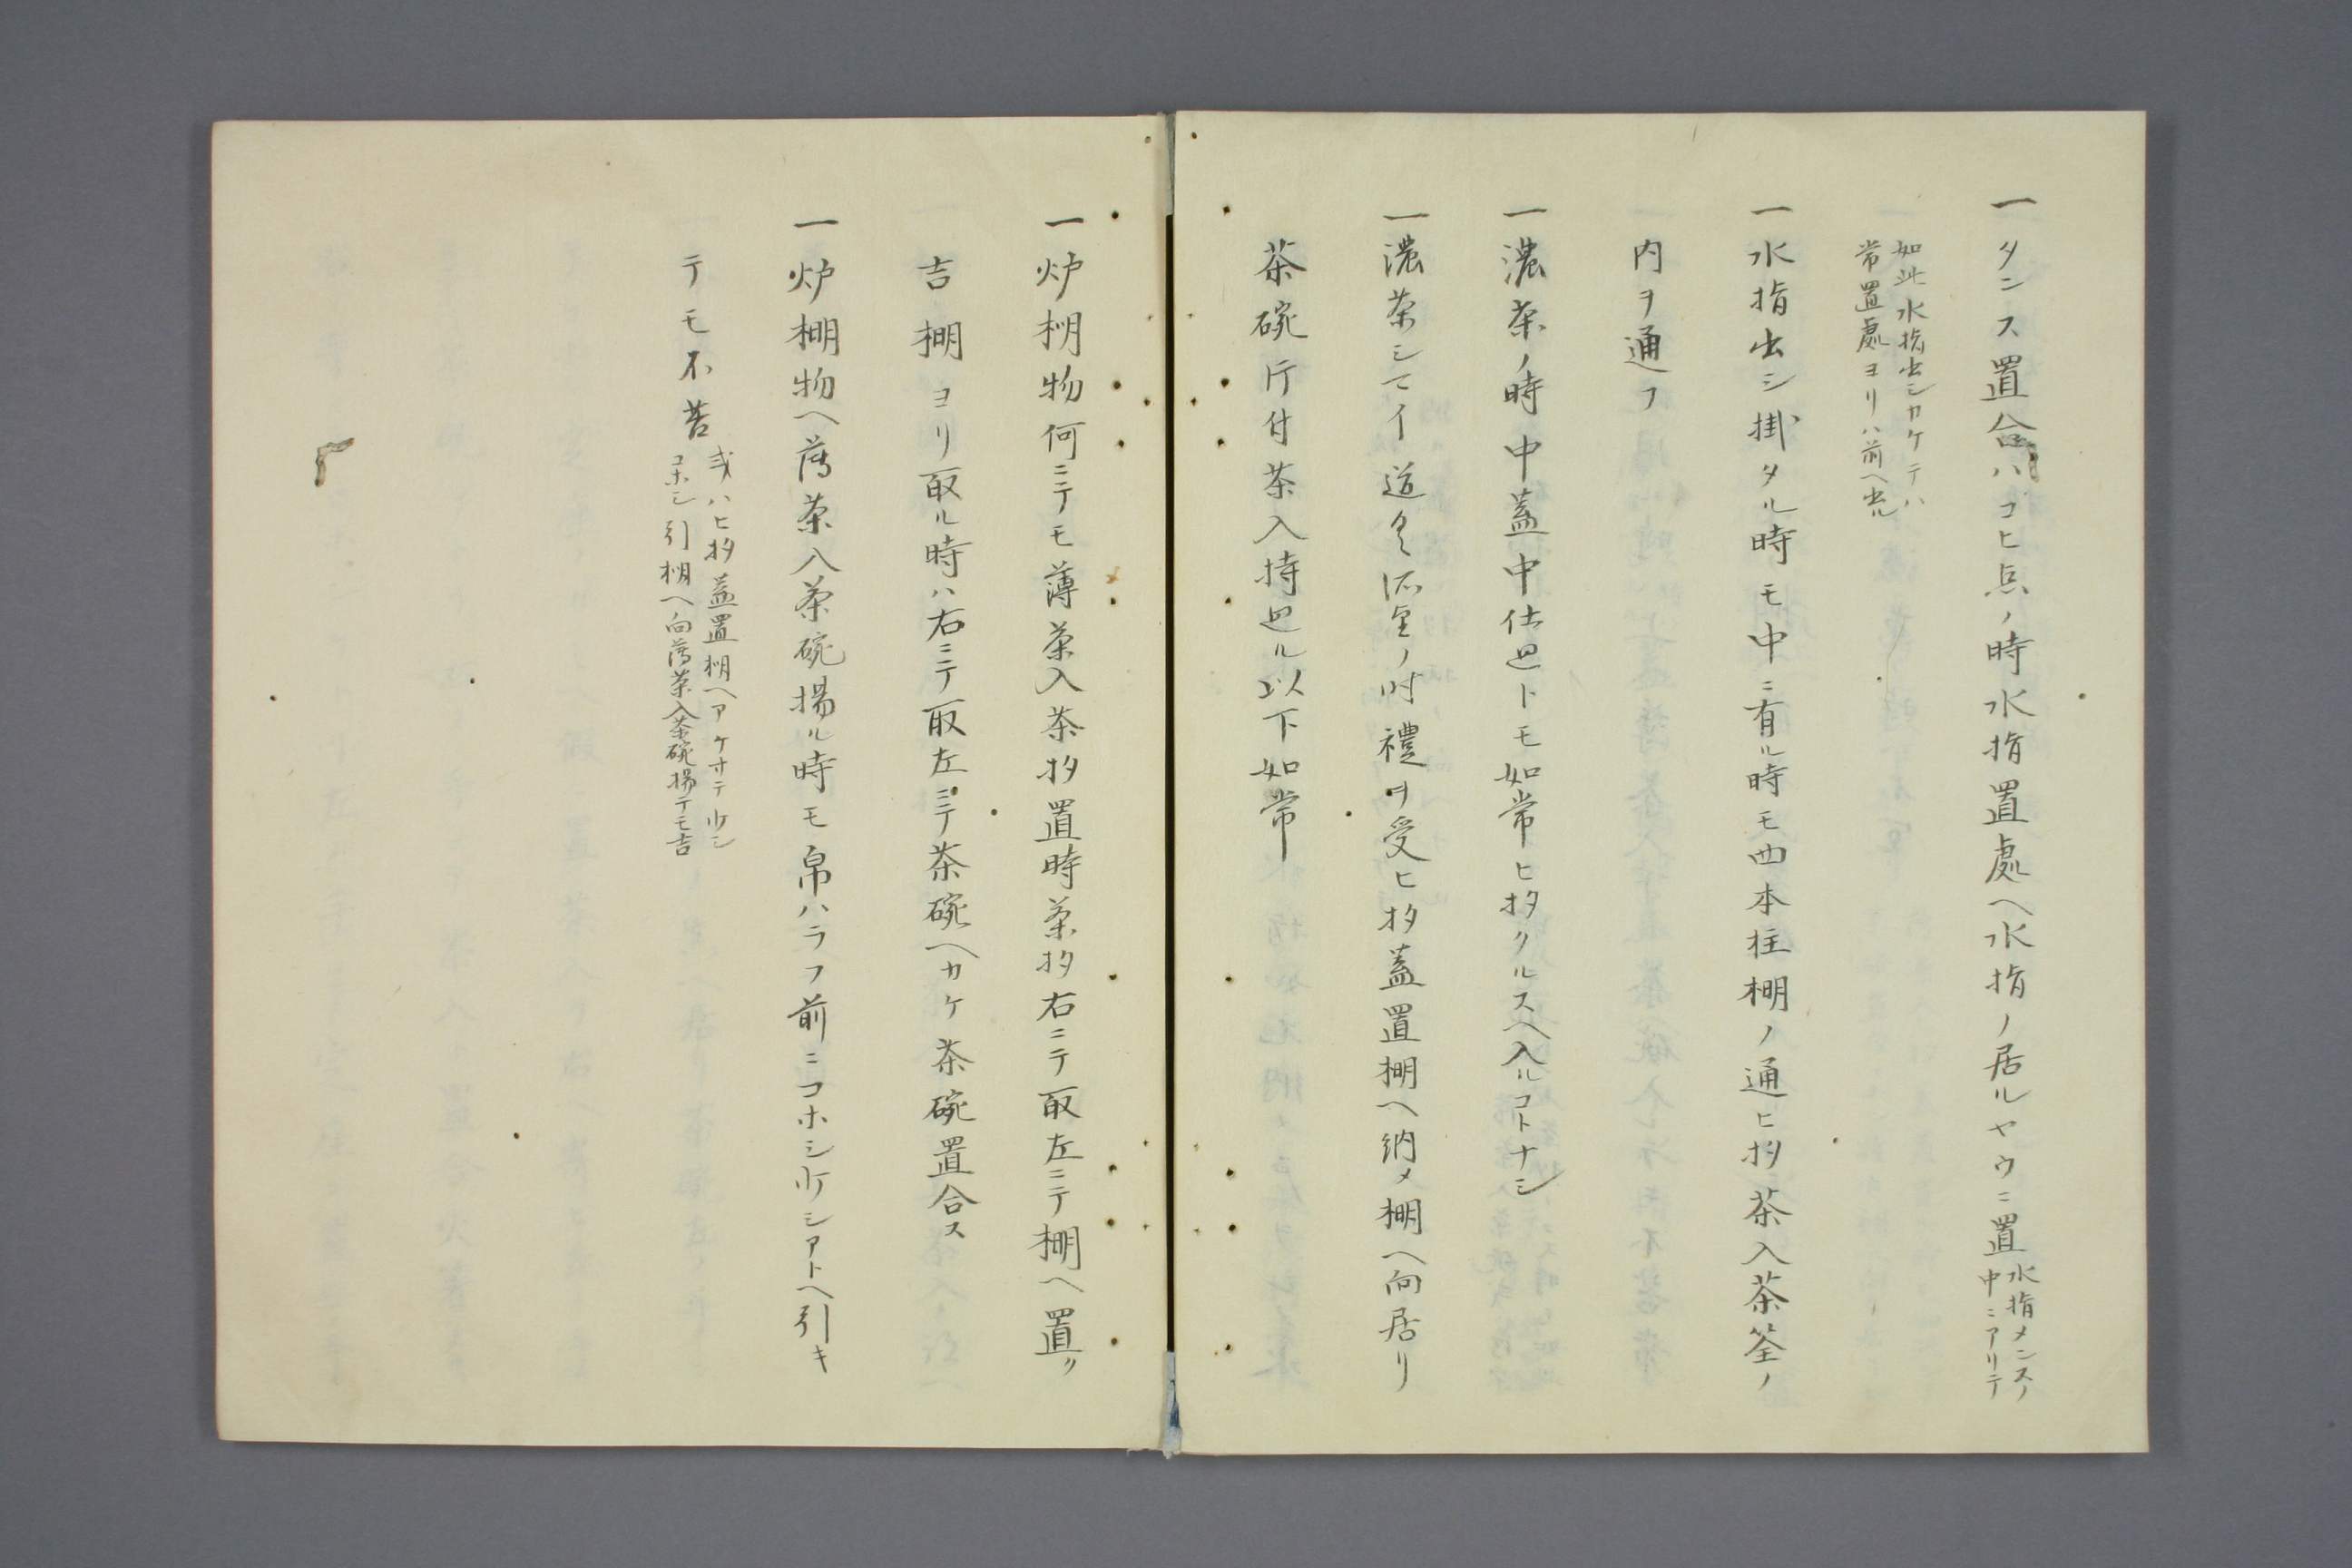 一タンス置合ハコヒ点ノ時水指置處ヘ水指ノ居ルヤウニ置
水指メンスノ
中ニアリテ
如此水指出シカケテハ
常置處ヨリハ前ヘ出ル
一水指出シ掛タル時モ中ニ有ル時モ四本柱棚ノ通ヒ杓茶入茶筌ノ
内ヲ通フ
一濃茶ノ時中蓋中仕廻トモ如常ヒ杓クルスヘ入ルコトナシ
一濃茶シマイ道具所望ノ时禮ヲ受ヒ杓蓋置棚ヘ納メ棚ヘ向居リ
茶碗片付茶入持廻ル以下如常
一炉棚物何ニテモ薄茶入茶杓置時茶杓右ニテ取左ニテ棚ヘ置ク
吉棚ヨリ取ル時ハ右ニテ取左ニテ茶碗ヘカケ茶碗置合ス
一炉棚物ヘ薄茶入茶碗揚ル時モ帛ハラフ前ニコホシ少シアトヘ引キ
テモ不苦
或ハヒ杓蓋置棚ヘアケオテ少シ
コホシ引棚ヘ向薄茶入茶碗揚テモ吉